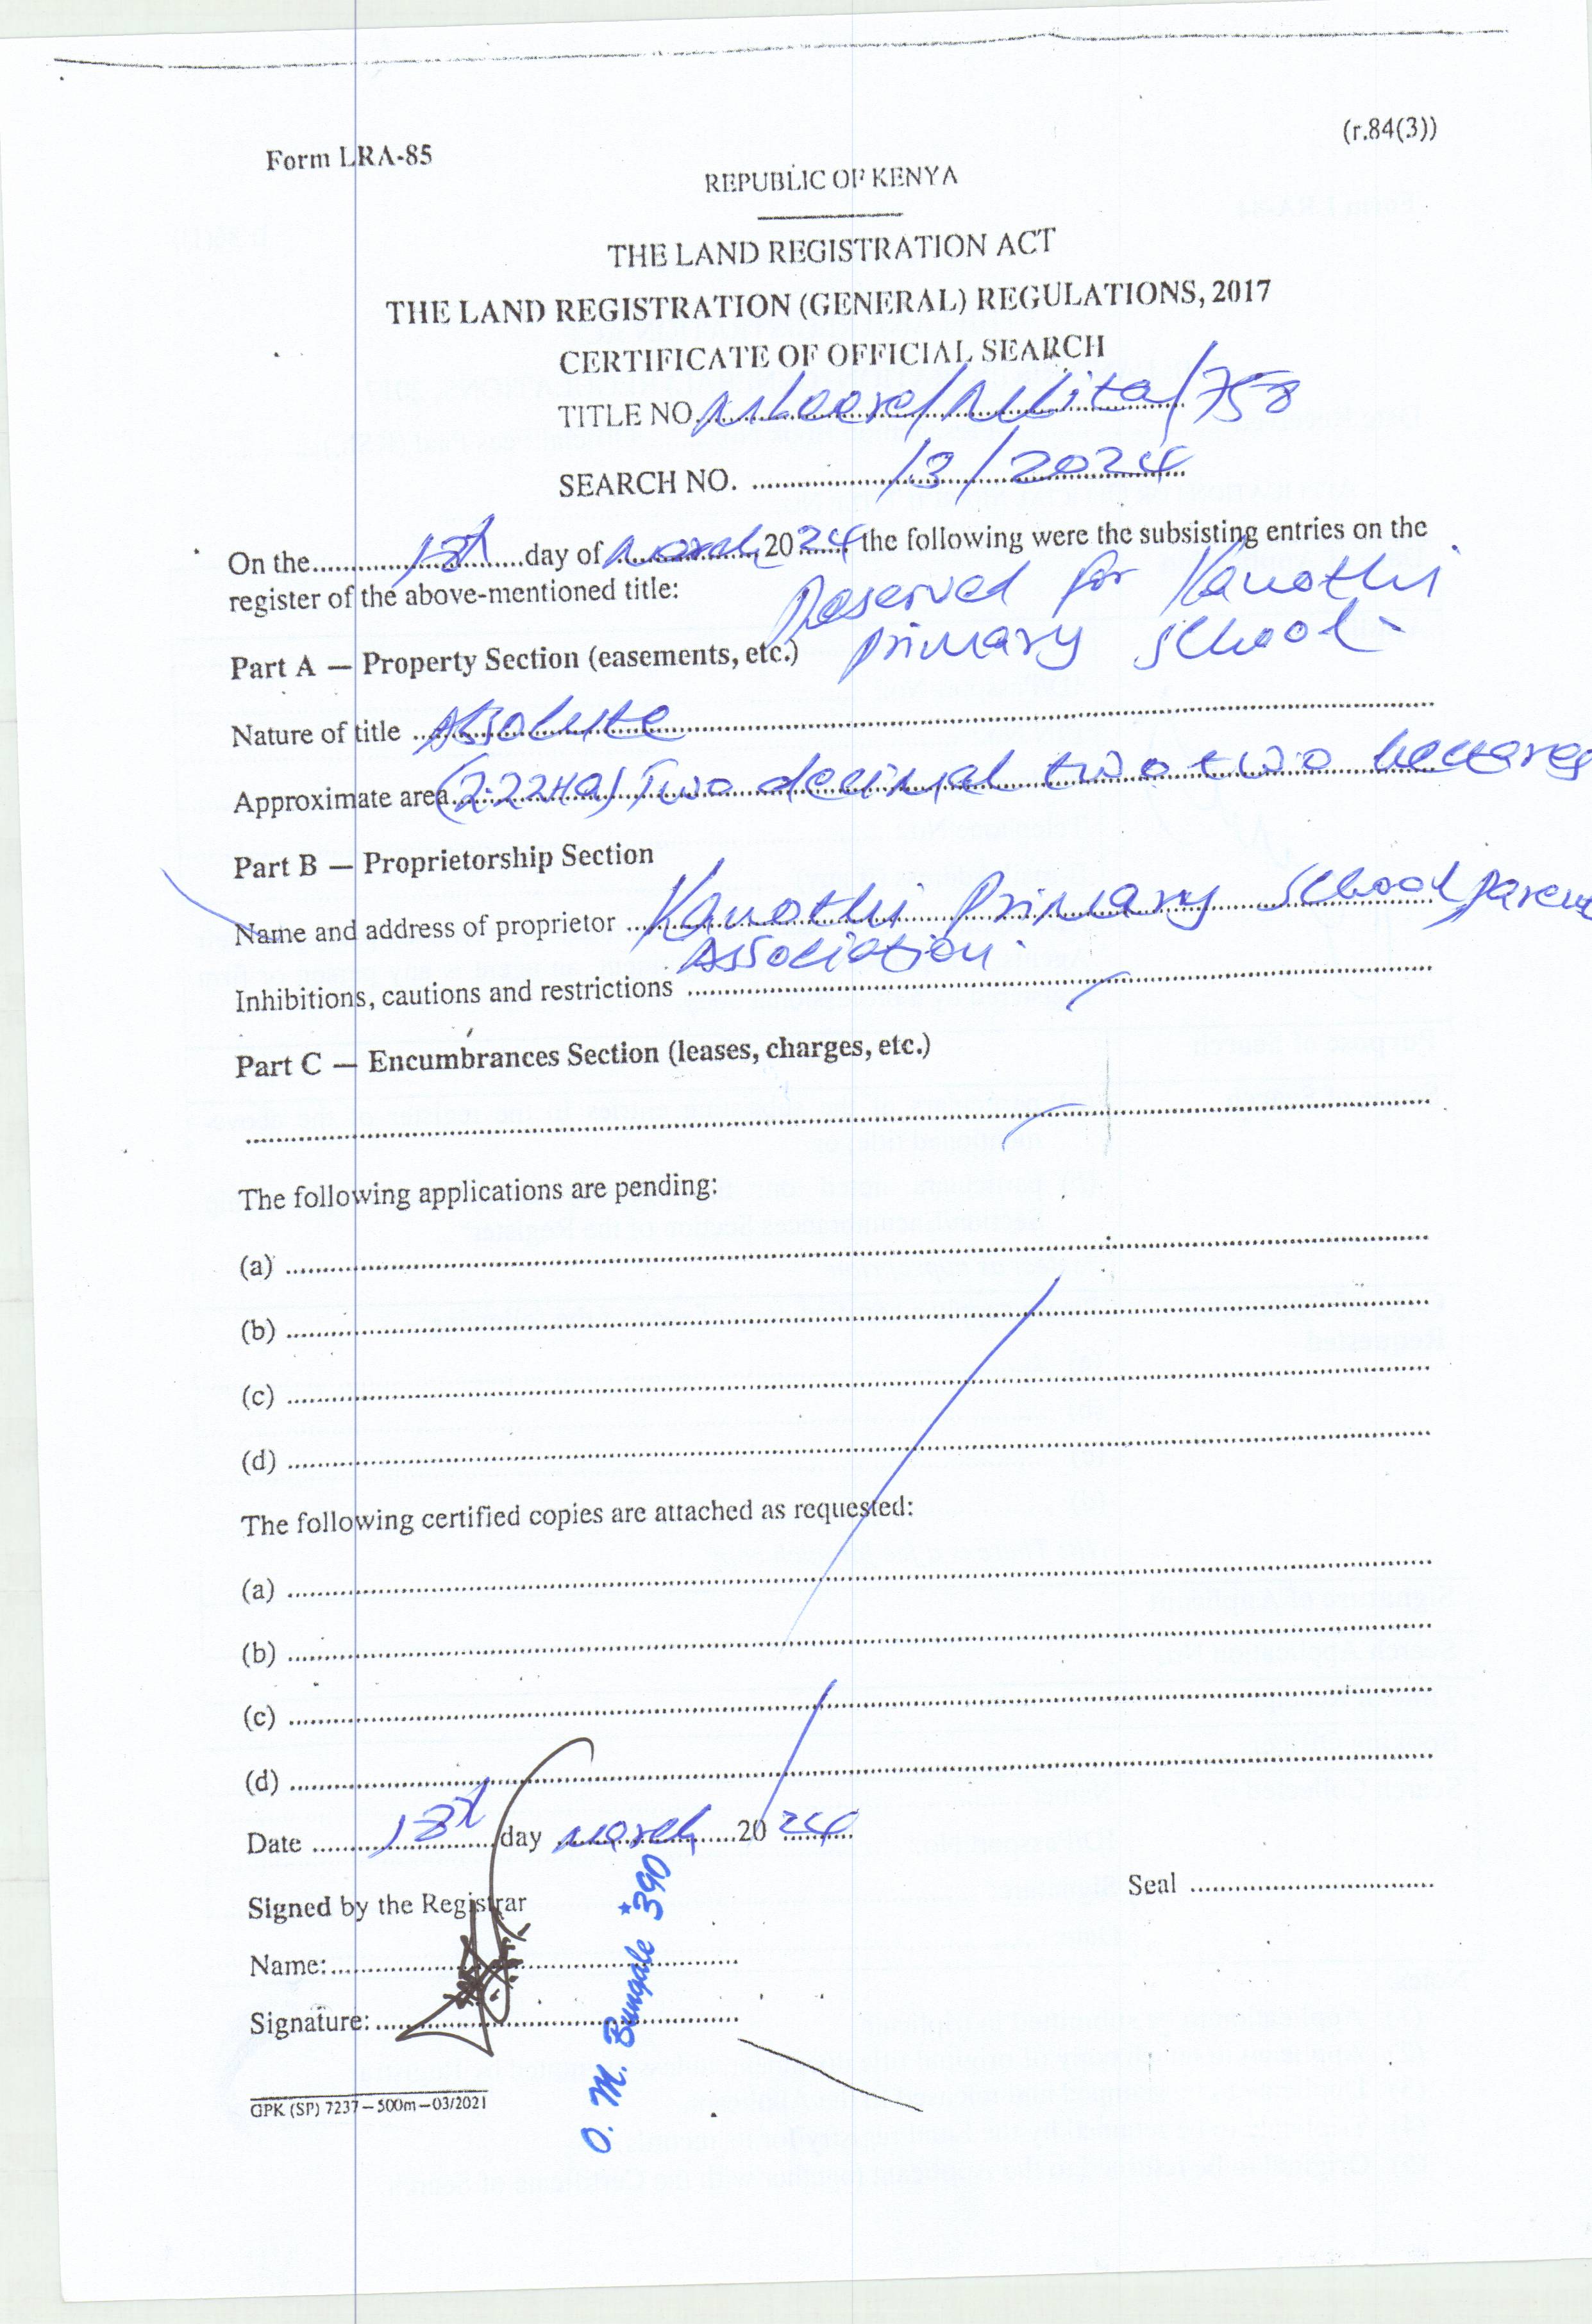 (r.84(3))
Form LRA-85
REPUBLIC OF KENYA
THE LAND REGISTRATION ACT
THE LAND REGISTRATION (GENERAL) REGULATIONS, 2017
CERTIFICATE OF OFFICIAL SEARCH
TITLE NO. /758
SEARCH NO. /3/2024
On the 18th day of March 2024 the following were the subsisting entries on the
register of the above-mentioned title:
Reserved for Kanothi
Part A — Property Section (easements, etc.) primary school
Nature of title Absolute
Approximate area (2.22Ha) Two decimal two two hectares
Part B — Proprietorship Section
Name and address of proprietor Kanothi Primary School parent
Association.
Inhibitions, cautions and restrictions
Part C — Encumbrances Section (leases, charges, etc.)
The following applications are pending:
(a)
(b)
(c)
(d)
The following certified copies are attached as requested:
(a)
(b)
(c)
(d)
Date 18th day March 2024
Signed by the Registrar
Seal
Name:
Signature:
O. M. Bungale *390
GPK (SP) 7237—500m—03/2021